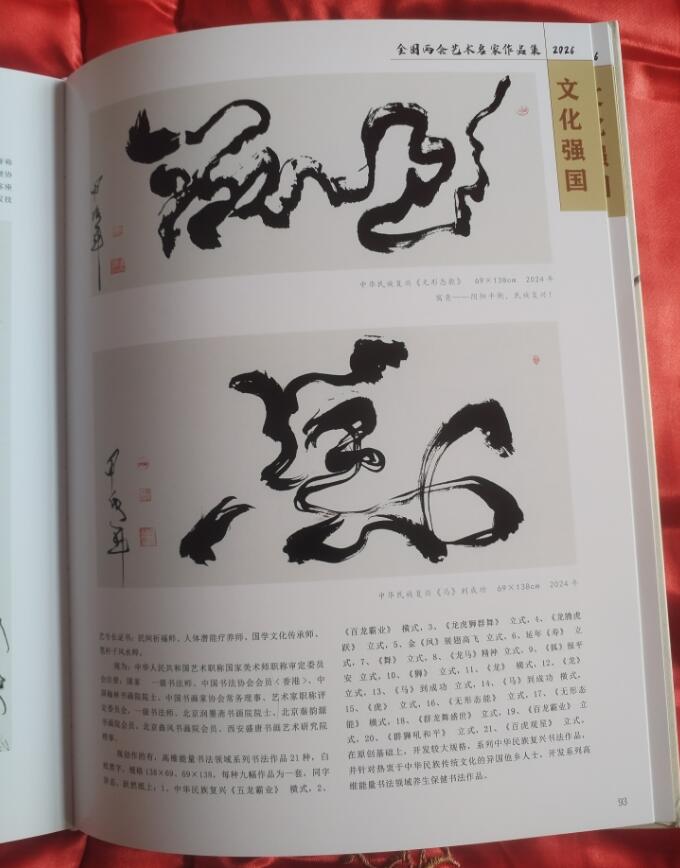 全国两会艺术名家作品集 2026
文化强国
中华民族复兴《无形态能》 69×138cm 2024年
寓意——阴阳平衡，民族复兴！
中华民族复兴《马》到成功 69×138cm 2024年
艺专长证书：民间祈福师、人体潜能疗养师、国学文化传承师、
现为：中华人民共和国艺术职称国家美术师职称审定委员
会注册：国家 一级书法师、中国书法协会会员〈香港〉、中
国翰林书画院院士、中国书画家协会常务理事、艺术家职称评
定委员会，一级书法师、北京润墨斋书画院院士、北京秦韵颢
书画院会员、北京鑫风书画院会员、西安盛唐书画艺术研究院
理事。
现创作的有，高维能量书法领域系列书法作品21种，白
纸墨字，规格138×69、69×138，每种九幅作品为一套，同字
异态，跃然纸上：1、中华民族复兴《五龙霸业》 横式，2、
《百龙霸业》 横式，3、《龙虎狮群舞》 立式，4、《龙腾虎
跃》 立式，5、金《凤》展翅高飞 立式，6、延年《寿》 立
式，7、《舞》 立式，8、《龙马》精神 立式，9、《狐》报平
安 立式，10、《狮》 立式，11、《龙》 横式，12、《龙》
立式，13、《马》到成功 立式，14、《马》到成功 横式，
15、《虎》 立式，16、《无形态能》 立式，17、《无形态
能》 横式，18、《群龙舞盛世》 立式，19、《百龙霸业》 立
式，20、《群狮吼和平》 立式，21、《百虎观星》 立式，
在原创基础上，开发较大规格，系列中华民族复兴书法作品，
并针对热衷于中华民族传统文化的异国他乡人士，开发系列高
维能量书法领域养生保健书法作品。
93